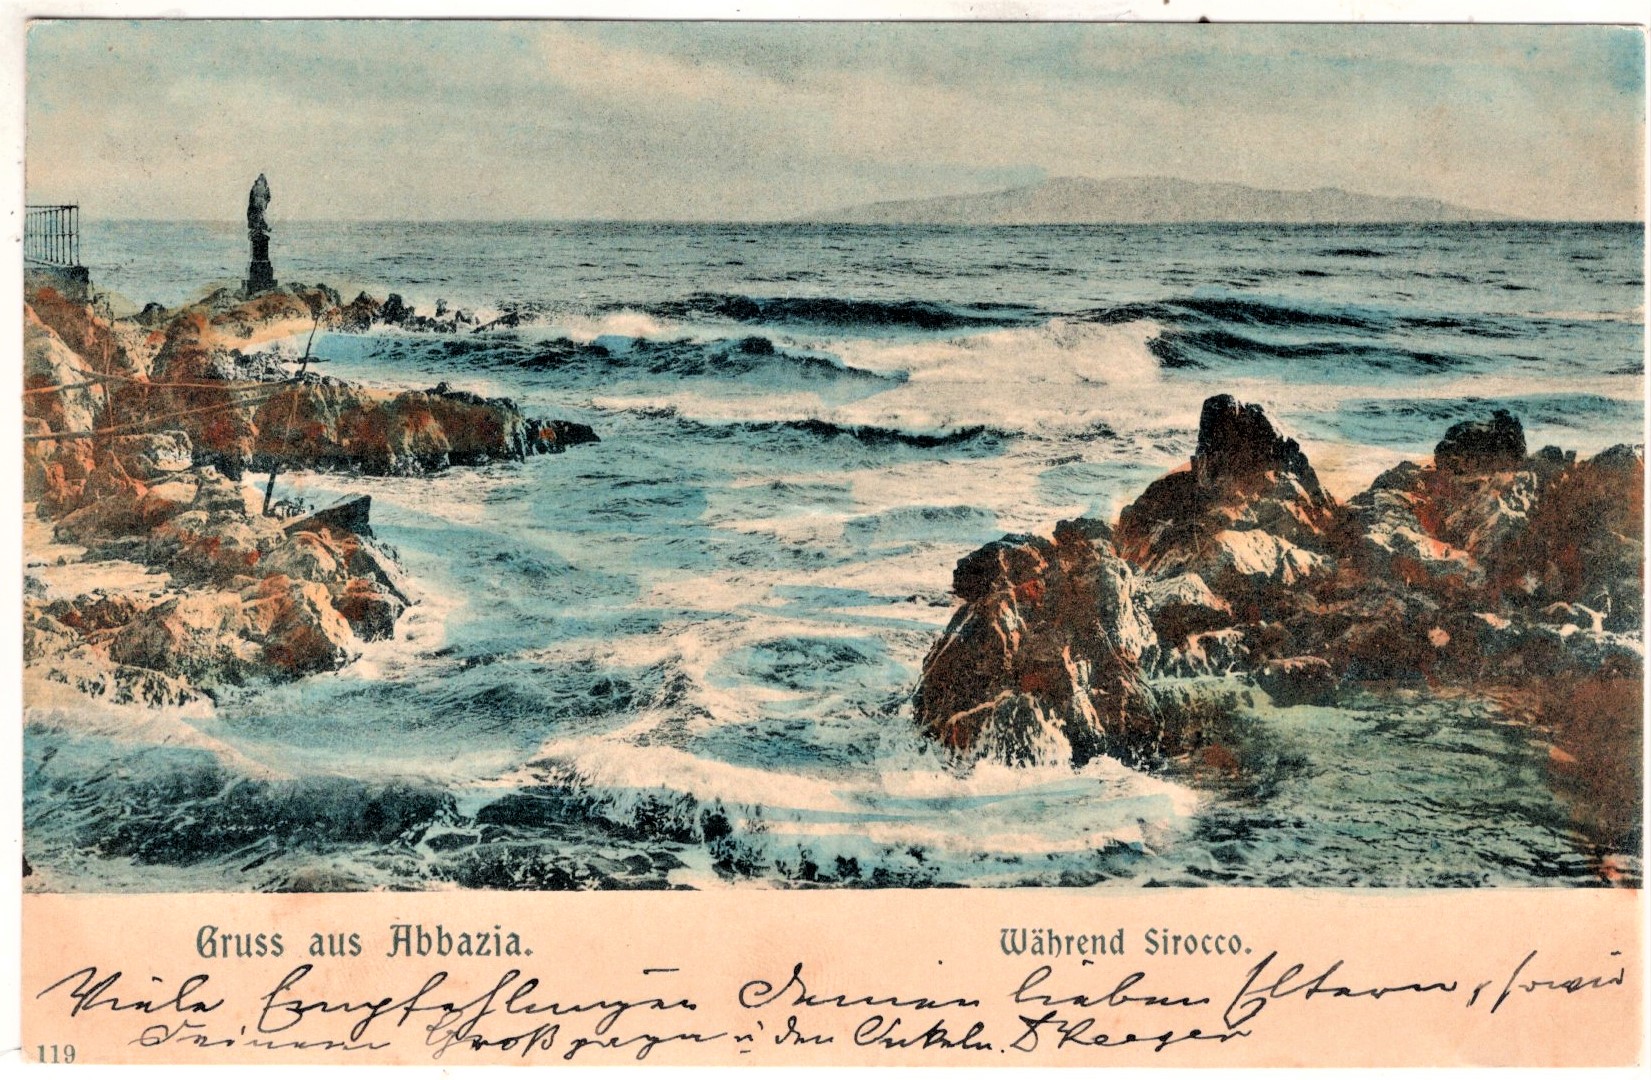 Gruss aus Abbazia.
Während Sirocco.
Viele Empfehlungen Deinen lieben Eltern, sowie
Deinem Großpapa u den Onkeln.
119